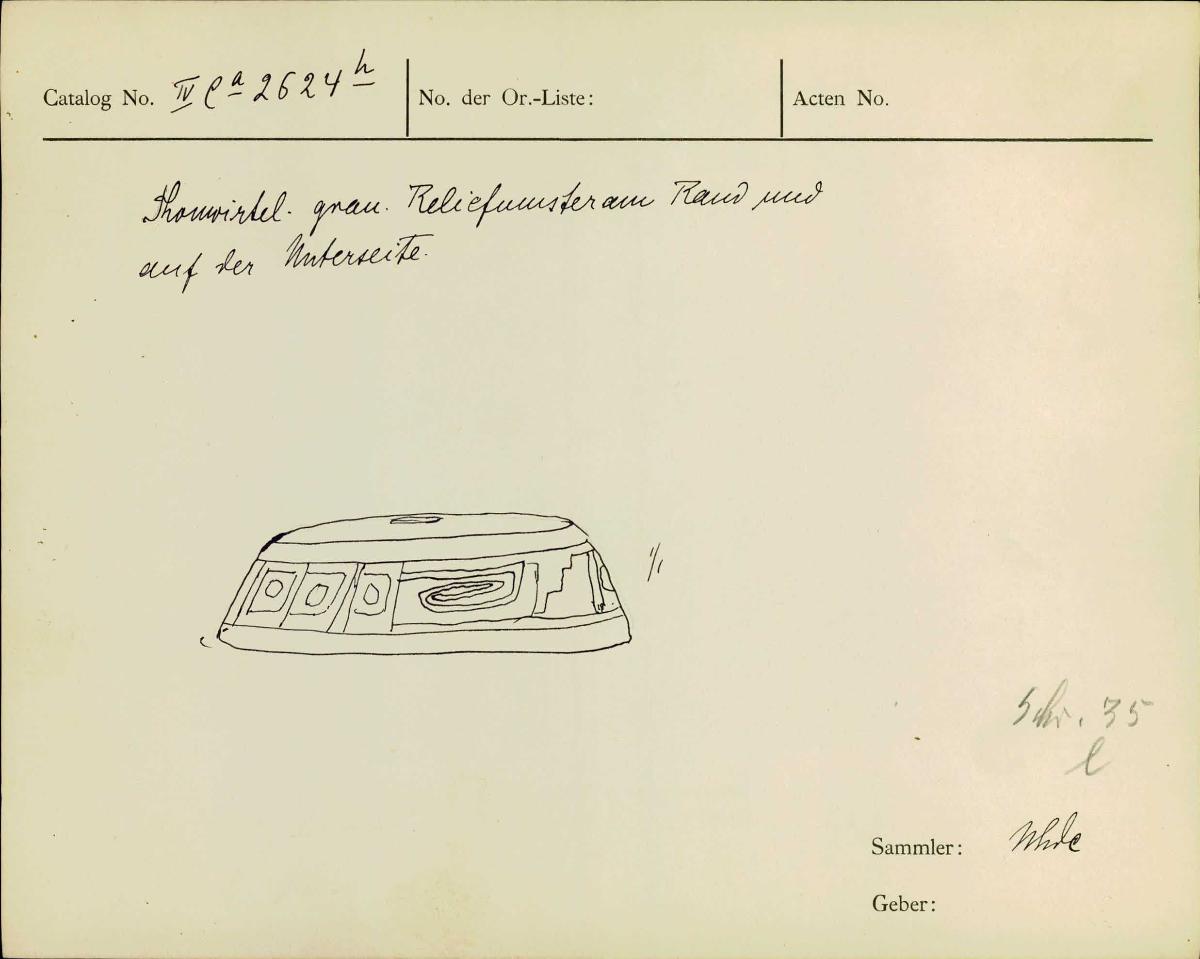 Catalog No. IV Ca 2624 h
No. der Or.-Liste:
Acten No.
Thonwirtel. grau. Reliefmuster am Rand und
auf der Unterseite.
1/1
Schr. 35
l
Sammler: Uhde
Geber: